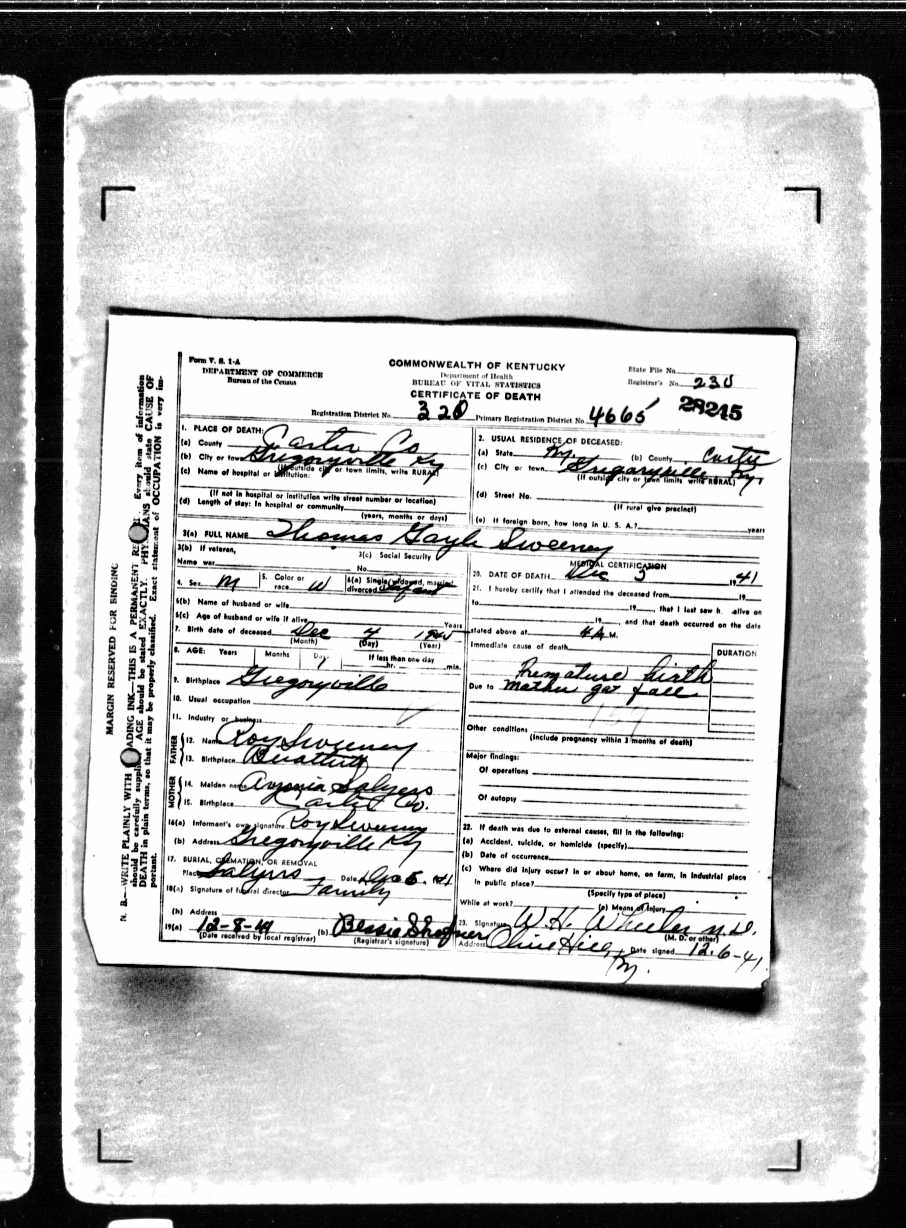 MARGIN RESERVED FOR BINDING
N. B.—WRITE PLAINLY WITH ADING INK. THIS IS A PERMANENT RE Every item of information
should be carefully suppli AGE should be stated EXACTLY. PHY ANS should state CAUSE OF
DEATH in plain terms, so that it may be properly classified. Exact statement of OCCUPATION is very im-
portant.
Form V. S. 1-A
DEPARTMENT OF COMMERCE
Bureau of the Census
COMMONWEALTH OF KENTUCKY
Department of Health
BUREAU OF VITAL STATISTICS
CERTIFICATE OF DEATH
State File No.
Registrar's No. 230
28215
Registration District No. 320 Primary Registration District No. 4665
1. PLACE OF DEATH:
(a) County Carter Co
(b) City or town Gregoryville Ky
(If outside city or town limits, write RURAL)
(c) Name of hospital or institution:
(If not in hospital or institution write street number or location)
(d) Length of stay: In hospital or community
(years, months or days)
2. USUAL RESIDENCE OF DECEASED:
(a) State Ky. (b) County Carter
(c) City or town Gregoryville Ky.
(If outside city or town limits write RURAL)
(d) Street No.
(If rural give precinct)
(e) If foreign born, how long in U. S. A.? years
3(a) FULL NAME Thomas Gayle Sweeney
3(b) If veteran,
Name war
3(c) Social Security
No.
4. Sex M 5. Color or race W 6(a) Single, widowed, married, divorced Infant
6(b) Name of husband or wife
6(c) Age of husband or wife if alive Years
7. Birth date of deceased Dec 4
(Month) (Day) (Year)
8. AGE: Years Months Days If less than one day
hr. min.
9. Birthplace Gregoryville
10. Usual occupation
11. Industry or business
FATHER
12. Name Roy Sweeney
13. Birthplace
MOTHER
14. Maiden name Salyers
15. Birthplace Carter Co.
16(a) Informant's own signature Roy Sweeney
(b) Address Gregoryville Ky
17. BURIAL, CREMATION, OR REMOVAL
Place Salyers Date Dec 5. 1941
18(a) Signature of funeral director Family
(b) Address
19(a) 12-8-41 (b) Bessie
(Date received by local registrar) (Registrar's signature)
MEDICAL CERTIFICATION
20. DATE OF DEATH Dec 5 1941
21. I hereby certify that I attended the deceased from 19
to 19 , that I last saw h alive on
19 , and that death occurred on the date
stated above at 4 A M.
Immediate cause of death
DURATION
Premature birth
Due to Mother got fall
Other conditions
(Include pregnancy within 3 months of death)
Major findings:
Of operations
Of autopsy
22. If death was due to external causes, fill in the following:
(a) Accident, suicide, or homicide (specify)
(b) Date of occurrence
(c) Where did injury occur? in or about home, on farm, in industrial place
in public place?
(Specify type of place)
While at work? (e) Means of injury
23. Signature W. H. Wheeler M.D.
(M. D. or other)
Address Olive Hill, Ky. Date signed 12.6-41